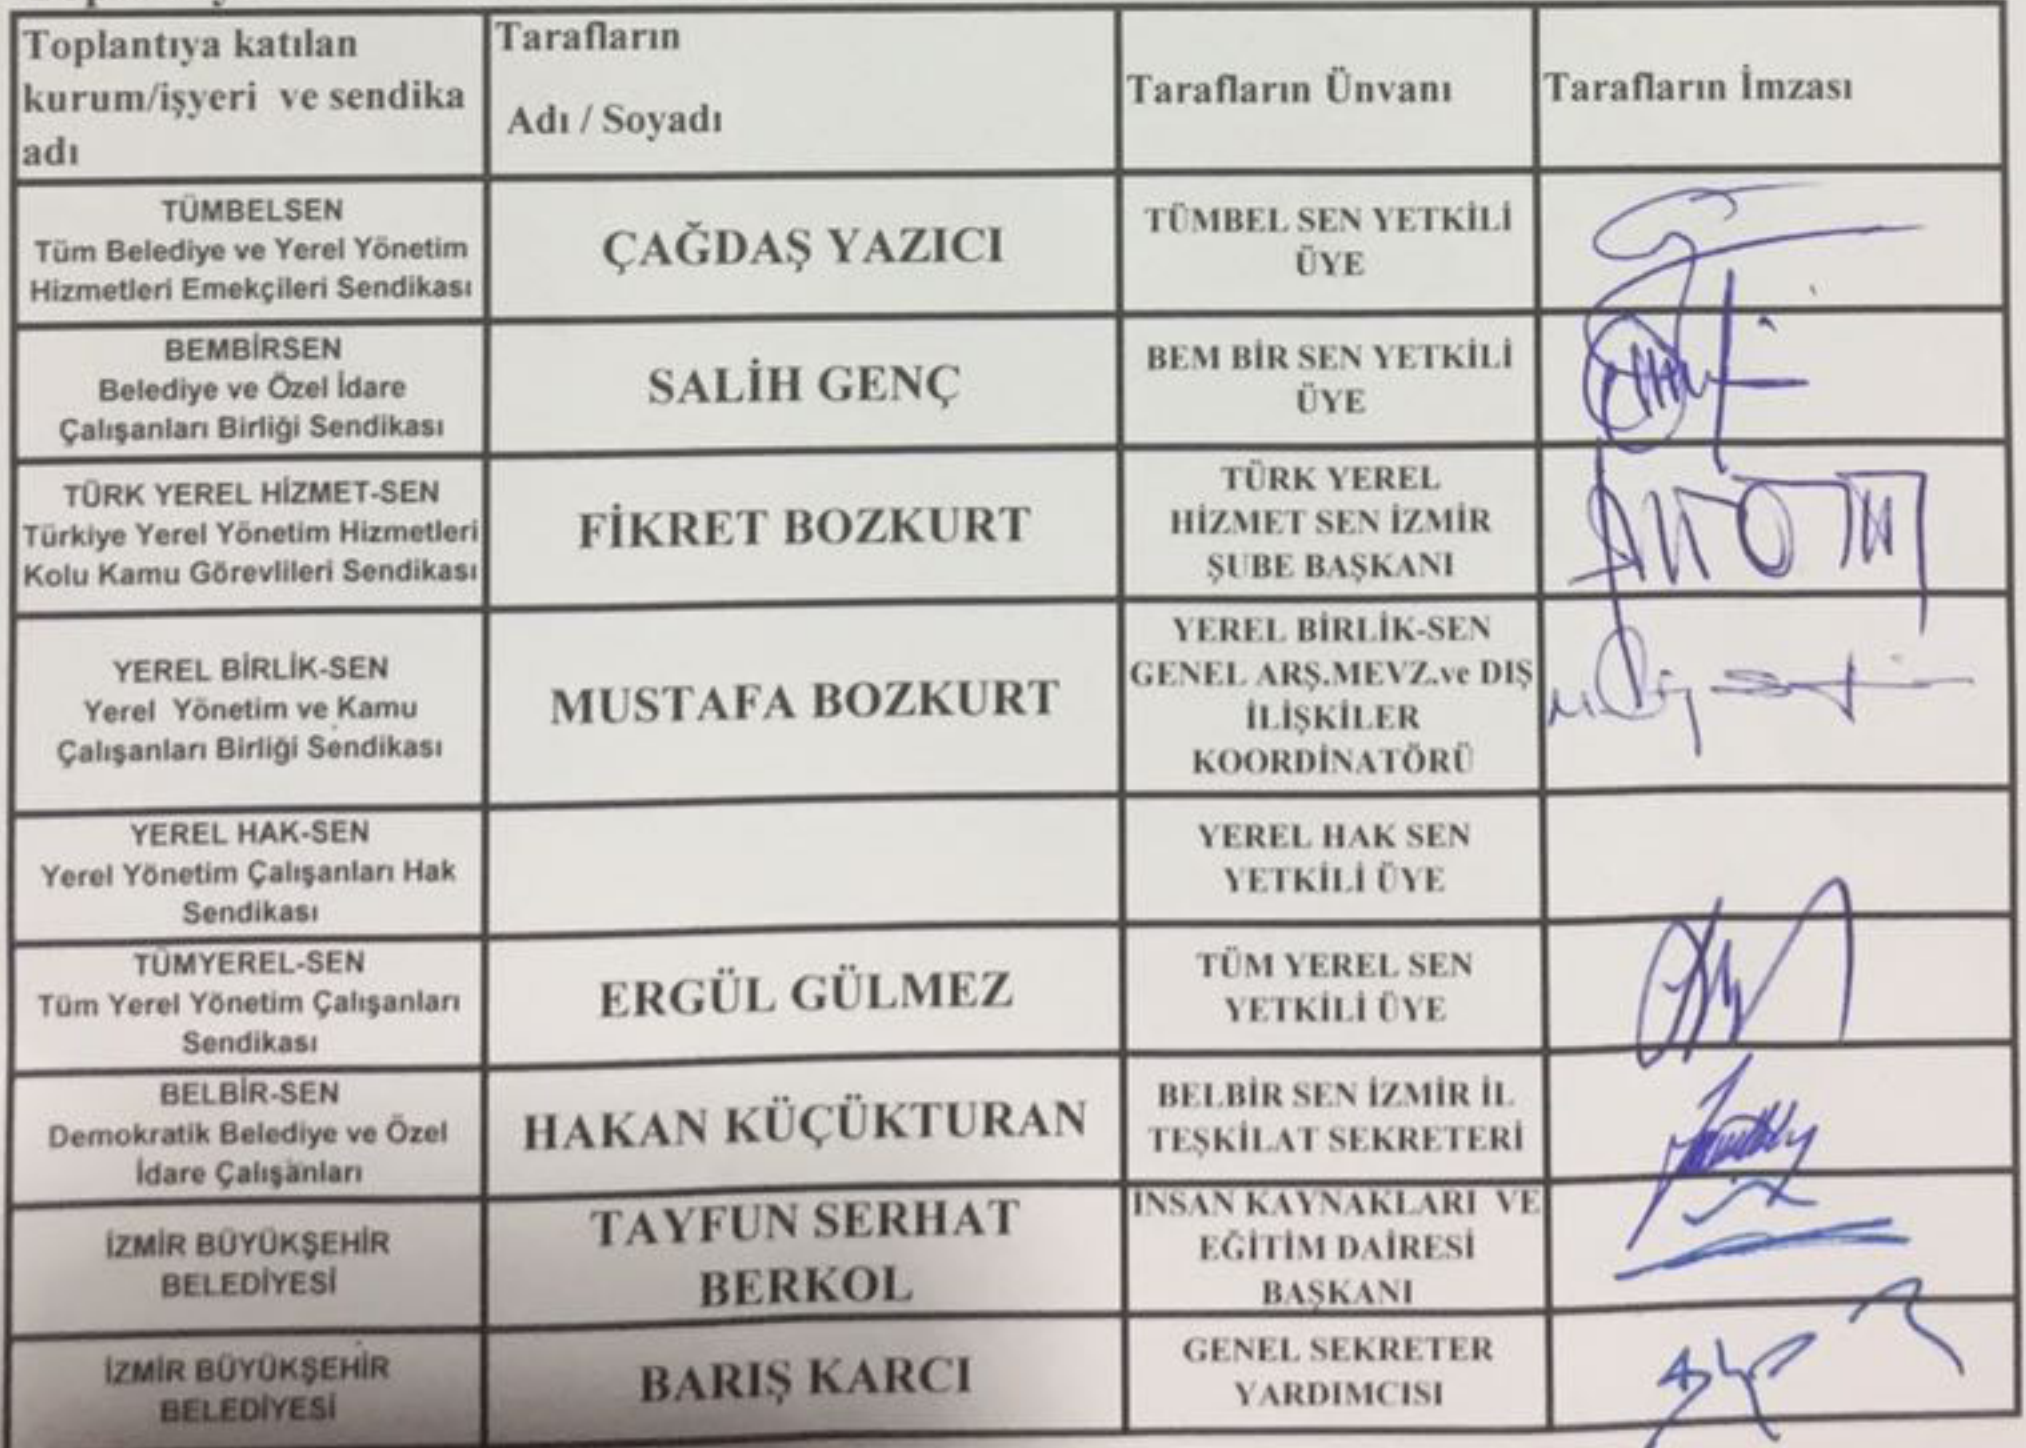 Toplantıya katılan
kurum/işyeri ve sendika
adı
Tarafların
Adı / Soyadı
Tarafların Ünvanı
Tarafların İmzası
TÜMBELSEN
Tüm Belediye ve Yerel Yönetim
Hizmetleri Emekçileri Sendikası
ÇAĞDAŞ YAZICI
TÜMBEL SEN YETKİLİ
ÜYE
BEMBİRSEN
Belediye ve Özel İdare
Çalışanları Birliği Sendikası
SALİH GENÇ
BEM BİR SEN YETKİLİ
ÜYE
TÜRK YEREL HİZMET-SEN
Türkiye Yerel Yönetim Hizmetleri
Kolu Kamu Görevlileri Sendikası
FİKRET BOZKURT
TÜRK YEREL
HİZMET SEN İZMİR
ŞUBE BAŞKANI
YEREL BİRLİK-SEN
Yerel Yönetim ve Kamu
Çalışanları Birliği Sendikası
MUSTAFA BOZKURT
YEREL BİRLİK-SEN
GENEL ARŞ.MEVZ.ve DIŞ
İLİŞKİLER
KOORDİNATÖRÜ
YEREL HAK-SEN
Yerel Yönetim Çalışanları Hak
Sendikası
YEREL HAK SEN
YETKİLİ ÜYE
TÜMYEREL-SEN
Tüm Yerel Yönetim Çalışanları
Sendikası
ERGÜL GÜLMEZ
TÜM YEREL SEN
YETKİLİ ÜYE
BELBİR-SEN
Demokratik Belediye ve Özel
İdare Çalışanları
HAKAN KÜÇÜKTURAN
BELBİR SEN İZMİR İL
TEŞKİLAT SEKRETERİ
İZMİR BÜYÜKŞEHİR
BELEDİYESİ
TAYFUN SERHAT
BERKOL
İNSAN KAYNAKLARI VE
EĞİTİM DAİRESİ
BAŞKANI
İZMİR BÜYÜKŞEHİR
BELEDİYESİ
BARIŞ KARCI
GENEL SEKRETER
YARDIMCISI